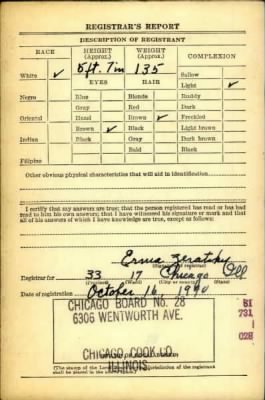 REGISTRAR'S REPORT
DESCRIPTION OF REGISTRANT
RACE
HEIGHT (Approx.)
WEIGHT (Approx.)
COMPLEXION
White ✓
5 ft. 7 in
135
Sallow
EYES
HAIR
Light ✓
Negro
Blue
Blonde
Ruddy
Gray
Red
Dark
Oriental
Hazel
Brown ✓
Freckled
Brown ✓
Black
Light brown
Indian
Black
Gray
Dark brown
Bald
Black
Filipino
Other obvious physical characteristics that will aid in identification
I certify that my answers are true; that the person registered has read or has had
read to him his own answers; that I have witnessed his signature or mark and that
all of his answers of which I have knowledge are true, except as follows:
Erma
Registrar for 33 17 Chicago Ill
(Precinct) (Ward) (State)
Date of registration October 16, 1940
CHICAGO BOARD NO. 28
6306 WENTWORTH AVE.
CHICAGO, COOK CO.
ILLINOIS
(The stamp of the Local Board having jurisdiction of the registrant
shall be placed in the above space.)
731
028